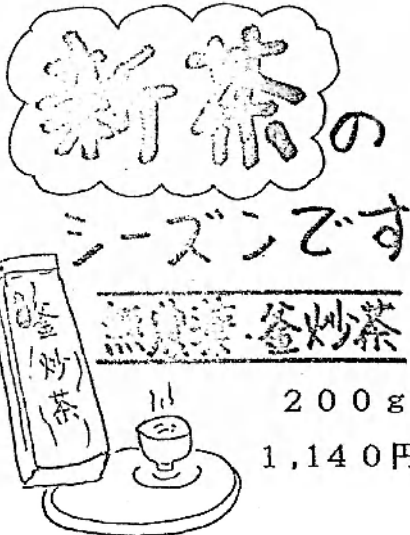 新茶の
シーズンです
無農薬・釜炒茶
釜炒茶
200g
1,140円